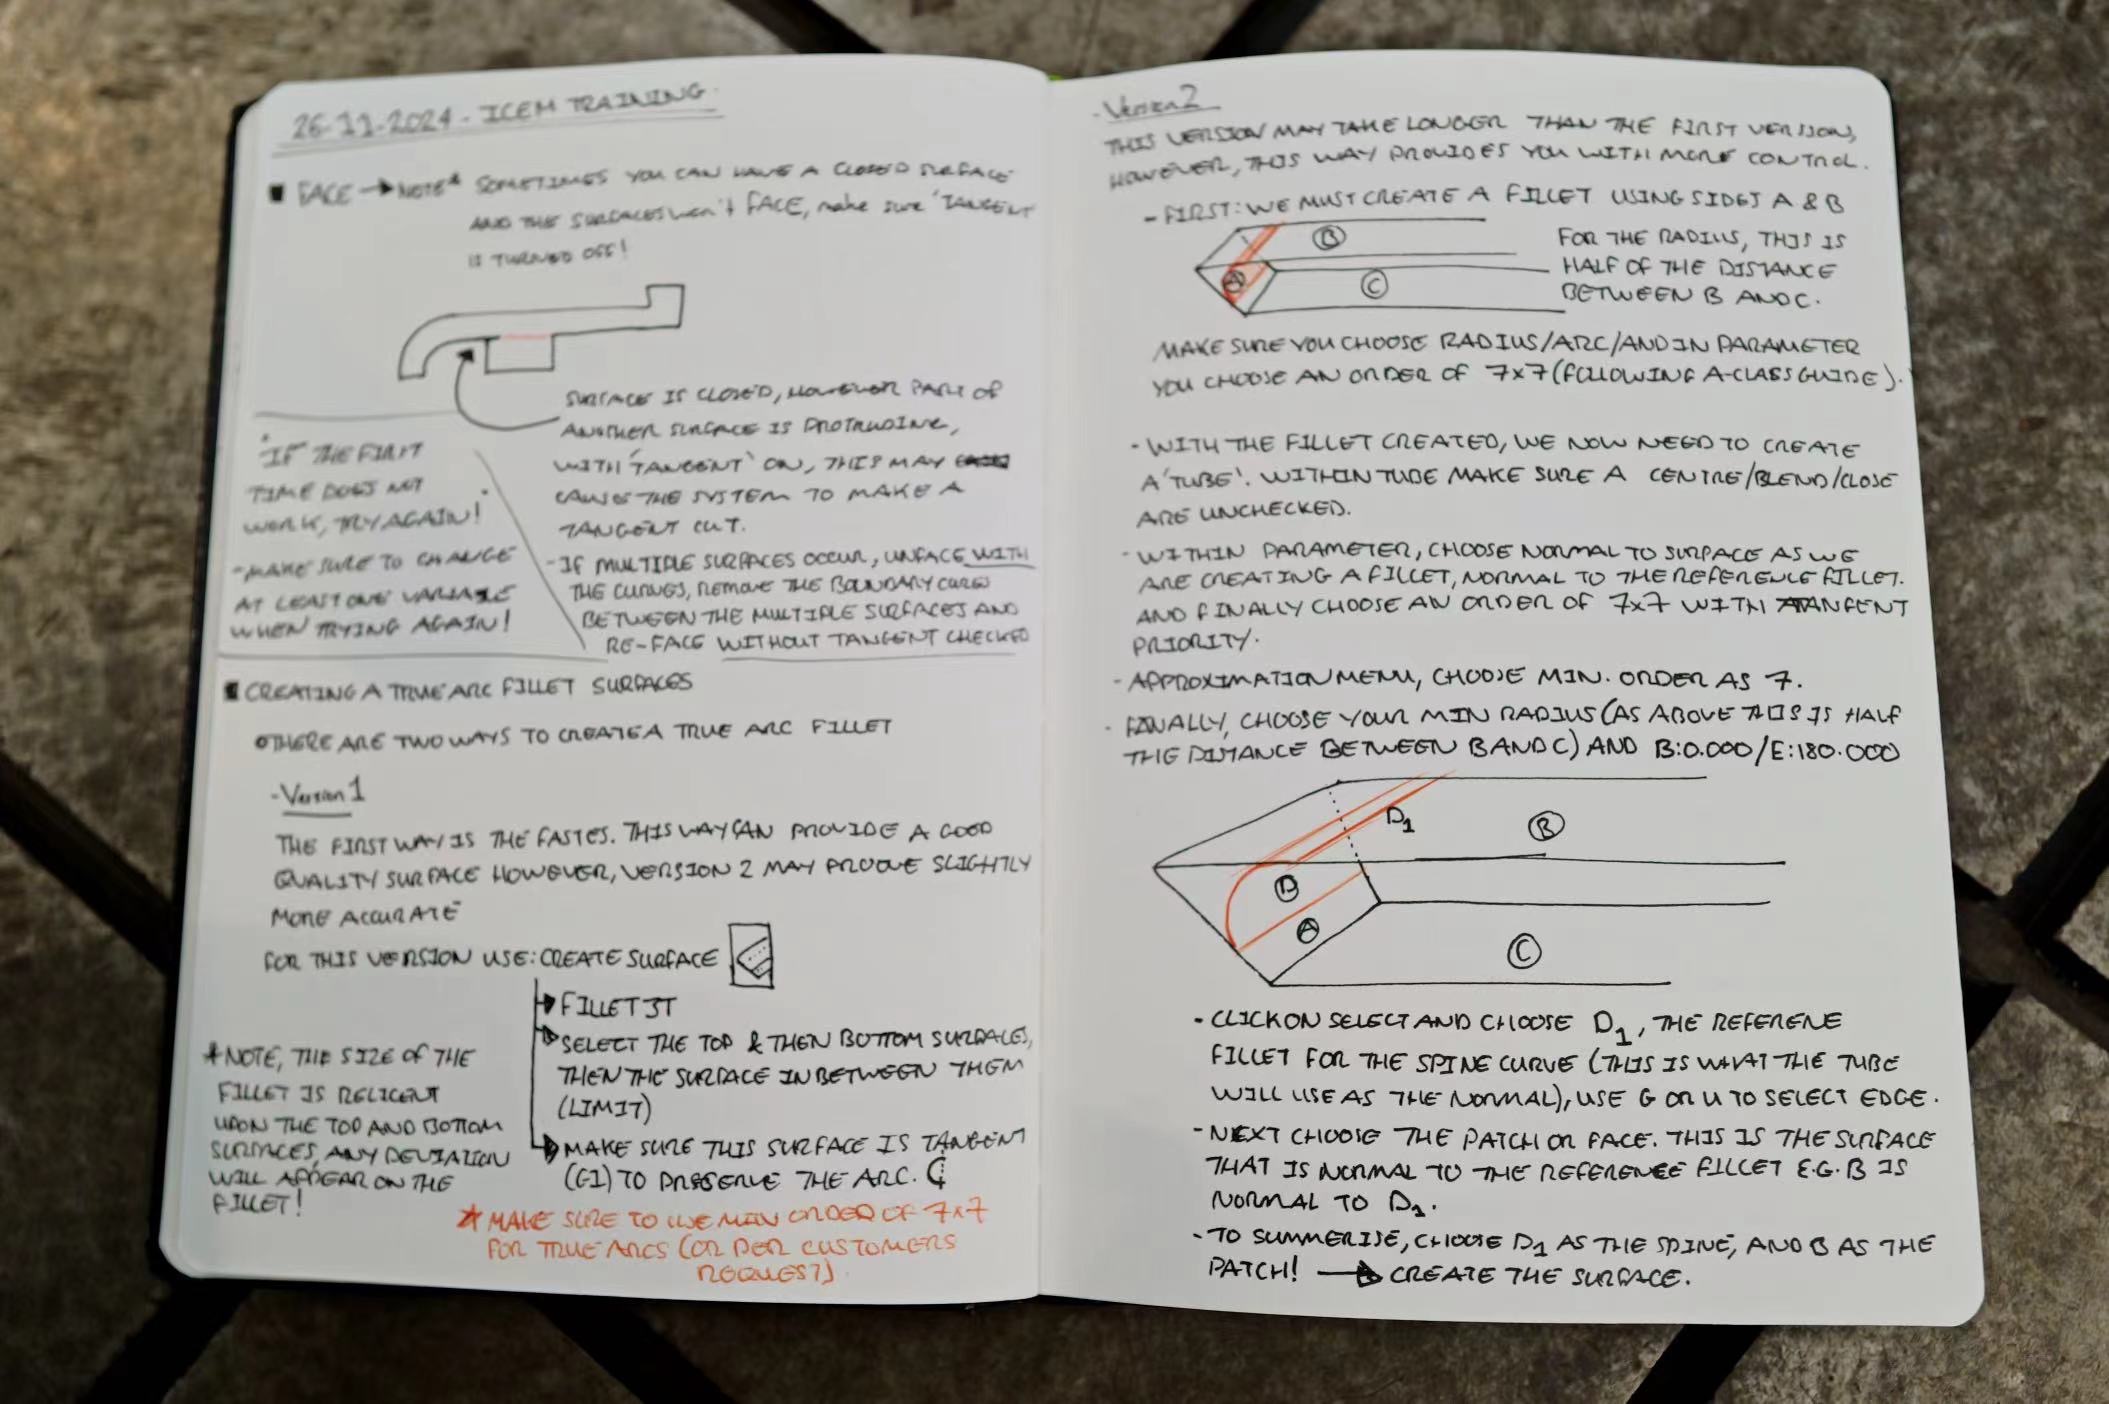 26-11-2024 - ICEM TRAINING
FACE → NOTE* SOMETIMES YOU CAN HAVE A CLOSED SURFACE
AND THE SURFACES won't FACE, make sure 'TANGENT
IS TURNED OFF!
SURFACE IS CLOSED, HOWEVER PART OF
ANOTHER SURFACE IS PROTRUDING,
WITH 'TANGENT' ON, THIS MAY
CAUSE THE SYSTEM TO MAKE A
TANGENT CUT.
- IF MULTIPLE SURFACES OCCUR, UNFACE WITH
THE CURVES, REMOVE THE BOUNDARY CURVES
BETWEEN THE MULTIPLE SURFACES AND
RE-FACE WITHOUT TANGENT CHECKED
IF THE FIRST
TIME DOES NOT
WORK, TRY AGAIN!
- MAKE SURE TO CHANGE
AT LEAST ONE VARIABLE
WHEN TRYING AGAIN!
CREATING A TRUE ARC FILLET SURFACES
THERE ARE TWO WAYS TO CREATE A TRUE ARC FILLET
- Version 1
THE FIRST WAY IS THE FASTES. THIS WAY CAN PROVIDE A GOOD
QUALITY SURFACE HOWEVER, VERSION 2 MAY PROOVE SLIGHTLY
MORE ACCURATE
FOR THIS VERSION USE: CREATE SURFACE
FILLET 3T
SELECT THE TOP & THEN BOTTOM SURFACES,
THEN THE SURFACE INBETWEEN THEM
(LIMIT)
MAKE SURE THIS SURFACE IS TANGENT
(G1) TO PRESERVE THE ARC.
* NOTE, THE SIZE OF THE
FILLET IS RELICENT
UPON THE TOP AND BOTTOM
SURFACES, ANY DEVIATION
WILL APPEAR ON THE
FILLET!
* MAKE SURE TO USE MIN ORDER OF 7x7
FOR TRUE ARCS (OR PER CUSTOMERS
REQUEST)
- Version 2
THIS VERSION MAY TAKE LONGER THAN THE FIRST VERSION,
HOWEVER, THIS WAY PROVIDES YOU WITH MORE CONTROL.
- FIRST: WE MUST CREATE A FILLET USING SIDES A & B
B
A
C
FOR THE RADIUS, THIS IS
HALF OF THE DISTANCE
BETWEEN B AND C.
MAKE SURE YOU CHOOSE RADIUS/ARC/AND IN PARAMETER
YOU CHOOSE AN ORDER OF 7x7 (FOLLOWING A-CLASS GUIDE).
- WITH THE FILLET CREATED, WE NOW NEED TO CREATE
A 'TUBE'. WITHIN TUBE MAKE SURE A CENTRE/BLEND/CLOSE
ARE UNCHECKED.
- WITHIN PARAMETER, CHOOSE NORMAL TO SURFACE AS WE
ARE CREATING A FILLET, NORMAL TO THE REFERENCE FILLET.
AND FINALLY CHOOSE AN ORDER OF 7x7 WITH TANGENT
PRIORITY.
- APPROXIMATION MENU, CHOOSE MIN. ORDER AS 7.
- FINALLY, CHOOSE YOUR MIN RADIUS (AS ABOVE THIS IS HALF
THE DISTANCE BETWEEN B AND C) AND B:0.000/E:180.000
D1
B
D
A
C
- CLICK ON SELECT AND CHOOSE D1, THE REFERENE
FILLET FOR THE SPINE CURVE (THIS IS WHAT THE TUBE
WILL USE AS THE NORMAL), USE G OR U TO SELECT EDGE.
- NEXT CHOOSE THE PATCH OR FACE. THIS IS THE SURFACE
THAT IS NORMAL TO THE REFERENCE FILLET E.G. B IS
NORMAL TO D1.
- TO SUMMERISE, CHOOSE D1 AS THE SPINE, AND B AS THE
PATCH! → CREATE THE SURFACE.